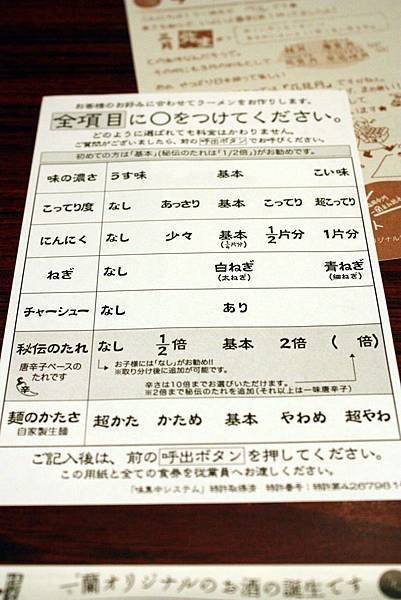 お客様のお好みに合わせてラーメンをお作りします。
全項目に○をつけてください。
どのように選ばれても料金はかわりません。
ご質問がございましたら、前の呼出ボタンでお呼びください。
初めての方は「基本」(秘伝のたれは「1/2倍」)がお勧めです。
味の濃さ うす味 基本 こい味
こってり度 なし あっさり 基本 こってり 超こってり
にんにく なし 少々 基本 1/2片分 1片分
(1/4片分)
ねぎ なし 白ねぎ 青ねぎ
(太ねぎ) (細ねぎ)
チャーシュー なし あり
秘伝のたれ なし 1/2倍 基本 2倍 ( 倍)
唐辛子ベースのたれです
お子様には「なし」がお勧め!!
※取り分け後に追加が可能です。
辛さは10倍までお選びいただけます。
※2倍まで秘伝のたれを追加(それ以上は一味唐辛子)
麺のかたさ 超かた かため 基本 やわめ 超やわ
自家製生麺
ご記入後は、前の呼出ボタンを押してください。
この用紙と全ての食券を従業員へお渡しください。
「味集中システム」特許取得済 特許番号:特許第4267981
一蘭オリジナルのお酒の誕生です